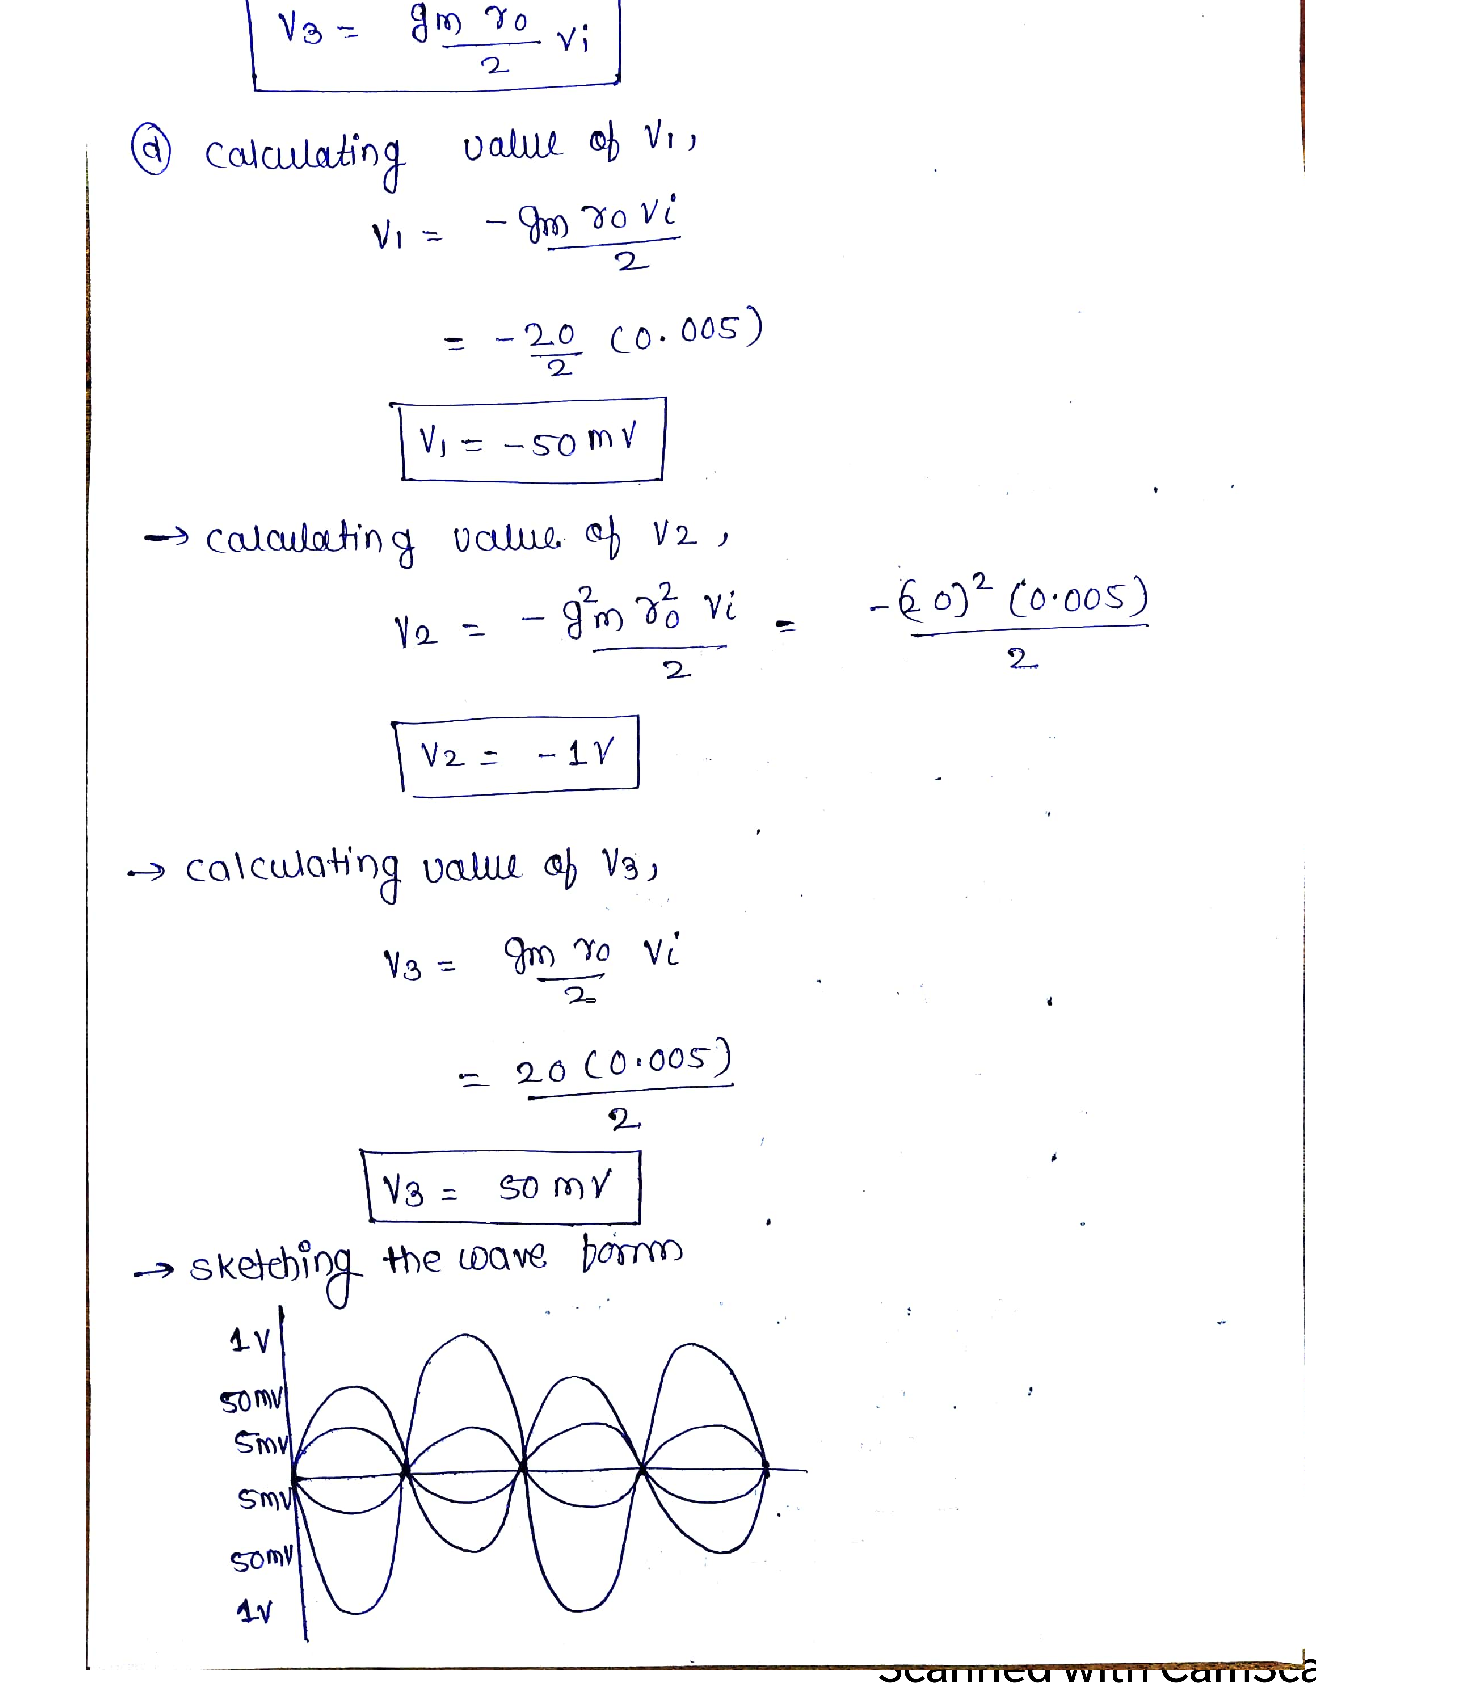 V3 = gm ro/2 vi
(d) calculating value of V1,
V1 = -gm ro vi/2
= -20/2 (0.005)
V1 = -50 mV
→ calculating value of V2,
V2 = -g²m r²o vi/2 = -(20)² (0.005)/2
V2 = -1V
→ calculating value of V3,
V3 = gm ro/2 vi
= 20 (0.005)/2
V3 = 50 mV
→ sketching the wave forms
1V
50mV
5mV
5mV
50mV
1V